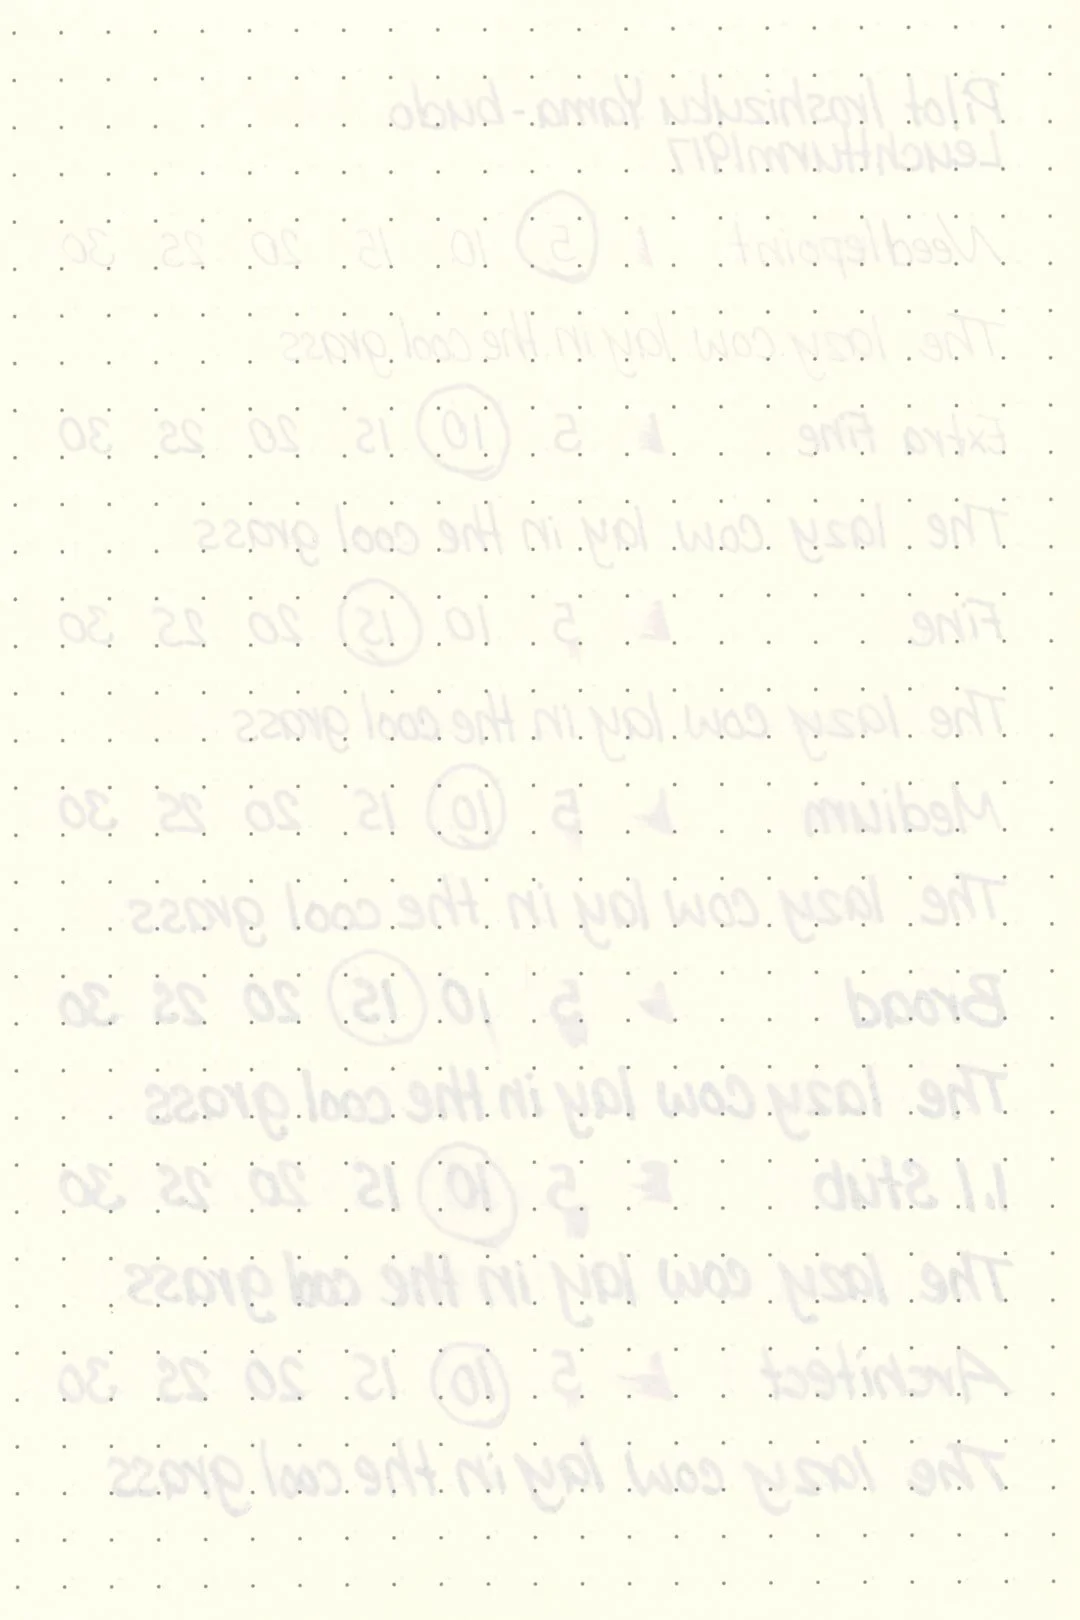 Pilot Iroshizuku Yama-budo
Leuchtturm1917
Needlepoint 1 5 10 15 20 25 30
The lazy cow lay in the cool grass
Extra Fine 1 5 10 15 20 25 30
The lazy cow lay in the cool grass
Fine 1 5 10 15 20 25 30
The lazy cow lay in the cool grass
Medium 1 5 10 15 20 25 30
The lazy cow lay in the cool grass
Broad 1 5 10 15 20 25 30
The lazy cow lay in the cool grass
1.1 Stub 1 5 10 15 20 25 30
The lazy cow lay in the cool grass
Architect 1 5 10 15 20 25 30
The lazy cow lay in the cool grass